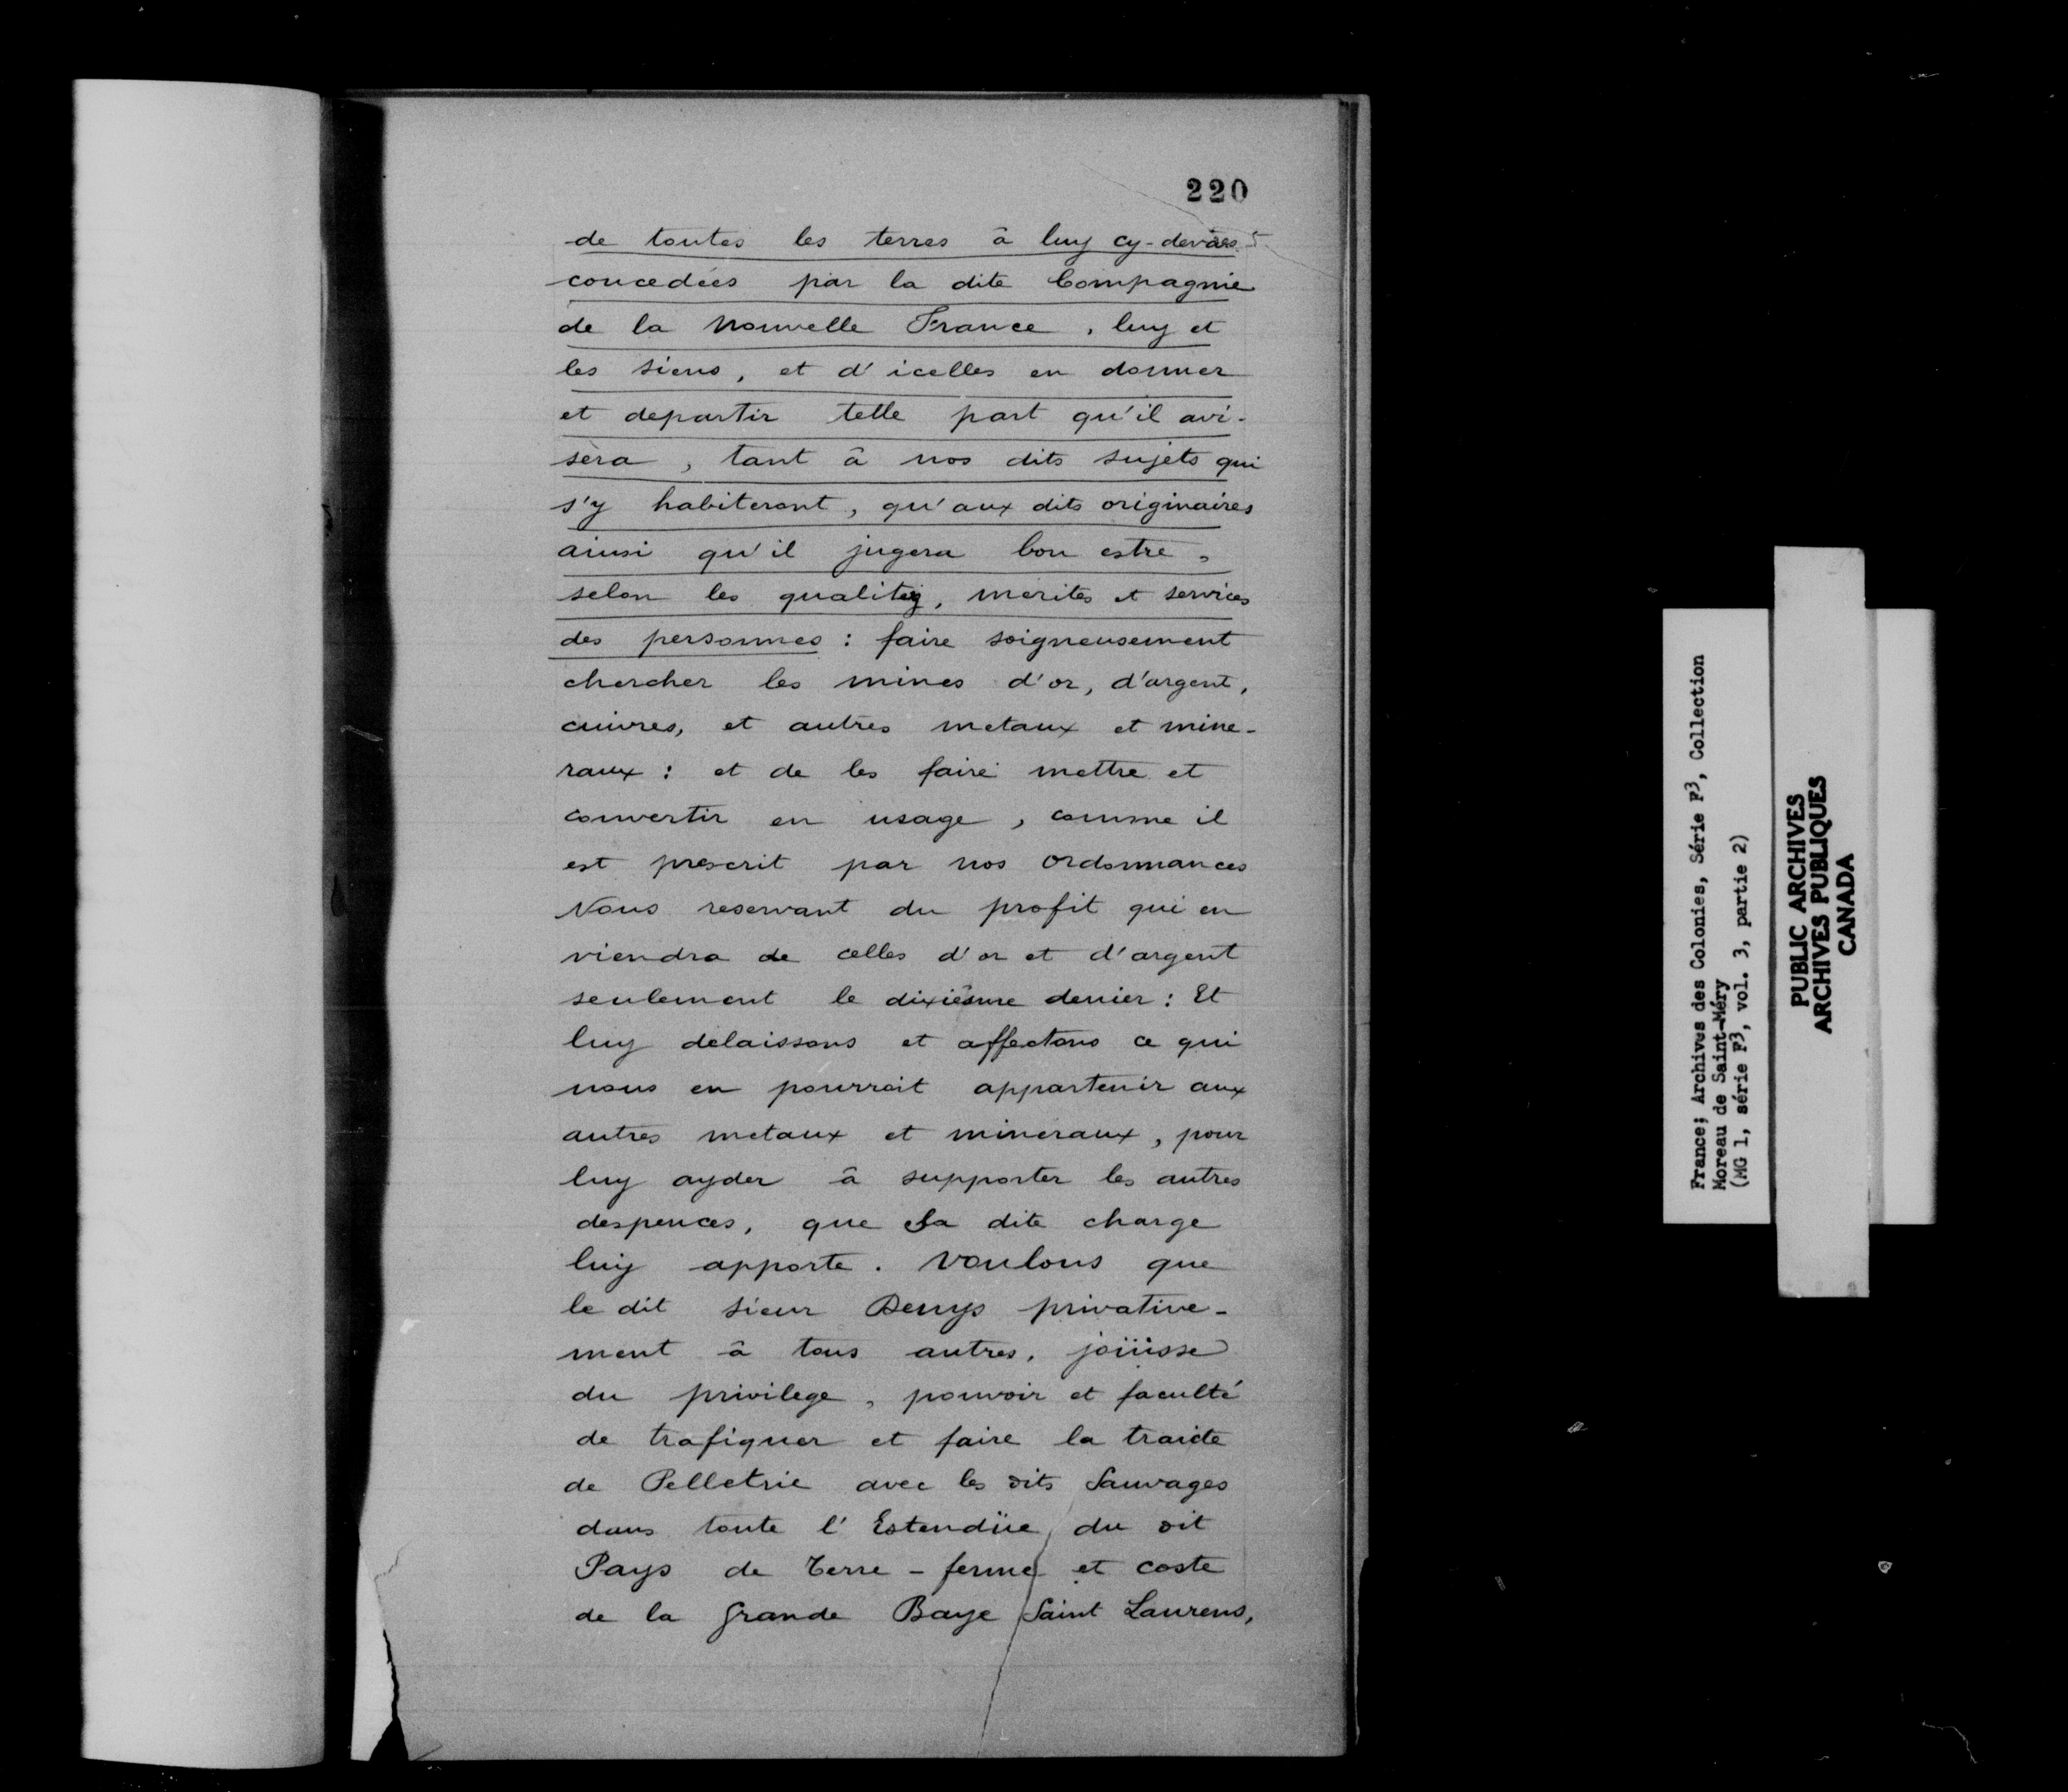 220
de toutes les terres â luy cy-devães
concedées par la dite Compagnie
de la Nouvelle France, luy et
les siens, et d'icelles en donner
et departir telle part qu'il avi-
sera, tant â nos dits sujets qui
s'y habiteront, qu'aux dits originaires
ainsi qu'il jugera bon estre,
selon les qualitez, merites et services
des personnes : faire soigneusement
chercher les mines d'or, d'argent,
cuivres, et autres metaux et mine-
raux : et de les faire mettre et
convertir en usage, comme il
est prescrit par nos ordonnances
Nous reservant du profit qui en
viendra de celles d'or et d'argent
seulement le dixiême denier : Et
luy delaissons et affectons ce qui
nous en pourrait appartenir aux
autres metaux et mineraux, pour
luy ayder â supporter les autres
despences, que sa dite charge
luy apporte. Voulons que
le dit sieur Denys privative-
ment â tous autres, joüisse
du privilege, pouvoir et faculté
de trafiquer et faire la traicte
de Pelletrie avec les dits Sauvages
dans toute l'Estendüe du dit
Pays de Terre-ferme et coste
de la Grande Baye Saint Laurens,
France; Archives des Colonies, Série F3, Collection
Moreau de Saint-Méry
(MG 1, série F3, vol. 3, partie 2)
PUBLIC ARCHIVES
ARCHIVES PUBLIQUES
CANADA